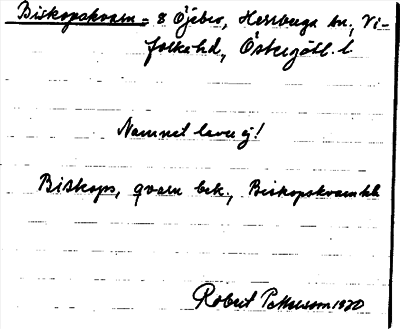 Biskopskvarn = 8 Öjebro, Herrberga sn, Vi-
folka hd, Östergötl. l
Namnet lever ej!
Biskops, qvarn bek., Biskopskvarn kb
Robert Pettersson 1930